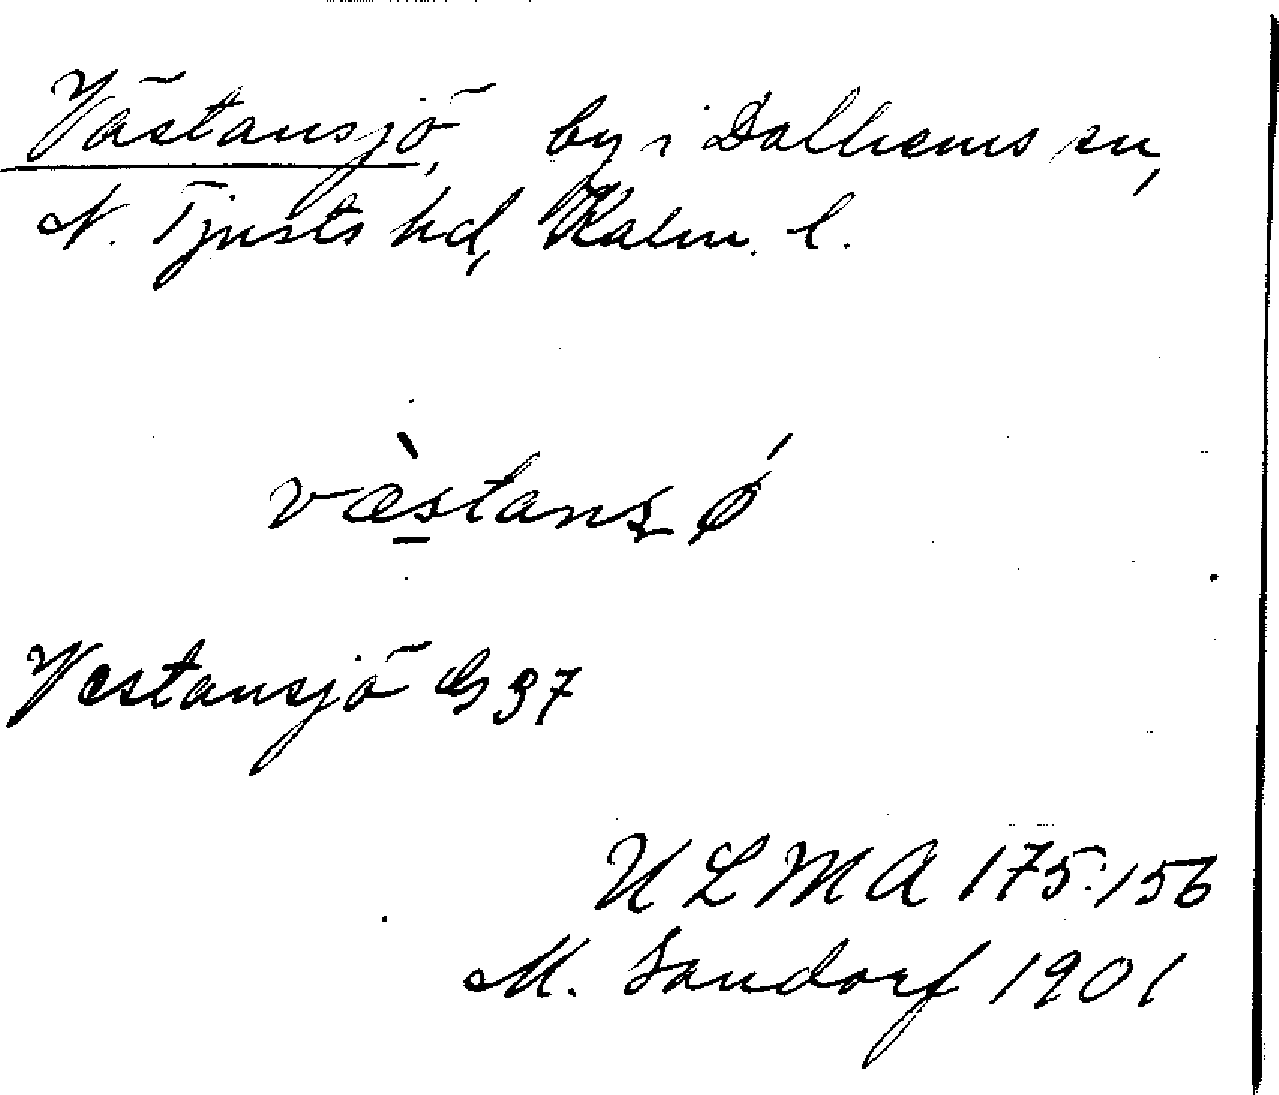 Västansjö, by i Dalhems sn,
N. Tjusts hd, Kalm. l.
væ̀stansǿ
Vestansjö G 37
ULMA 175:156
M. Sandorf 1901